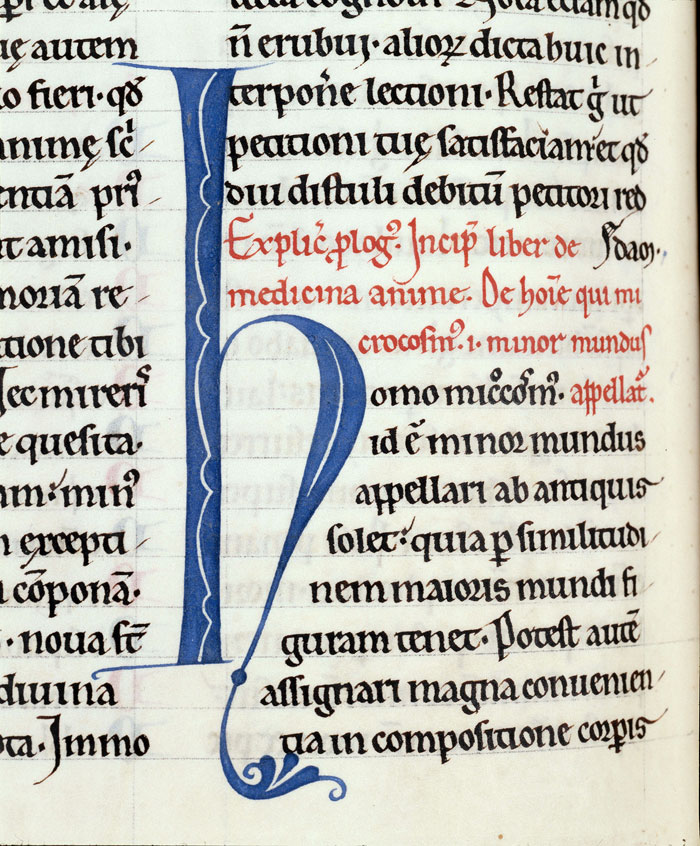 ę autem
o fieri · qđ
animę sc̄
entiā pri᷒
t amisi·
moriā re
ctione tibi
ec mirer᷒
e quesita·
am: min᷒
n excepti
cōponā·
· noua st̄
diuina
ta · Immo
n̄ erubui · alioꝝ dictabuıc in
terpon̄e lectioni · Restat g̍ ut
petitioni tuę satisfaciam et qđ
diu distuli debitū petitori red
Explic̄ plog᷒. Incip̄ liber de dā oi·
medicina anime. De hoīe qui mi
crocosm᷒ .i. minor mundus
Homo mic̊cosm᷒· appellat̄.
id ē minor mundus
appellari ab antiquis
solet: quia ꝑ similitudi
nem maioris mundi fi
guram tenet · Potest autē
assignari magna conuenien
tia in compositione corpis